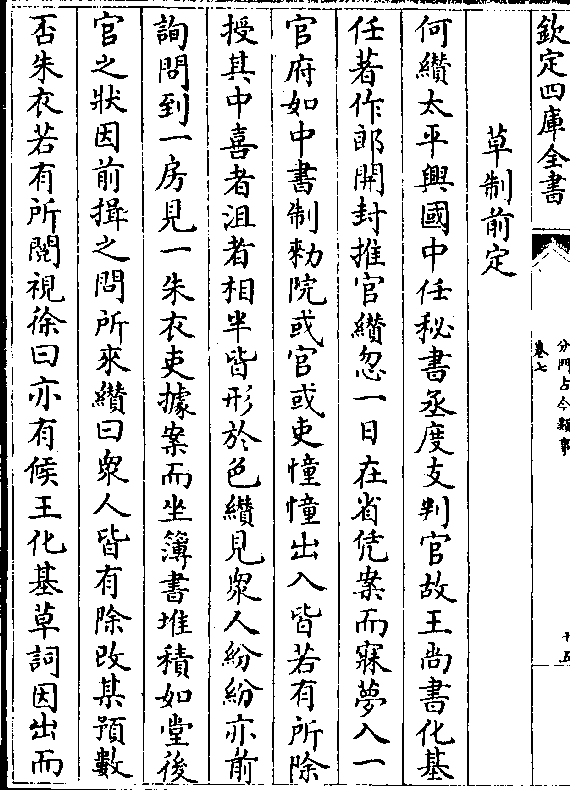 欽定四庫全書
分門古今類事
卷七
十五
草制前定
何纘太平興國中任秘書丞度支判官故王尚書化基
任著作郎開封推官纘忽一日在省凭案而寐夢入一
官府如中書制敕院或官或吏憧憧出入皆若有所除
授其中喜者沮者相半皆形於色纘見衆人紛紛亦前
詢問到一房見一朱衣吏據案而坐簿書堆積如堂後
官之狀因前揖之問所來纘曰衆人皆有除改某預數
否朱衣若有所閱視徐曰亦有候王化基草詞因出而